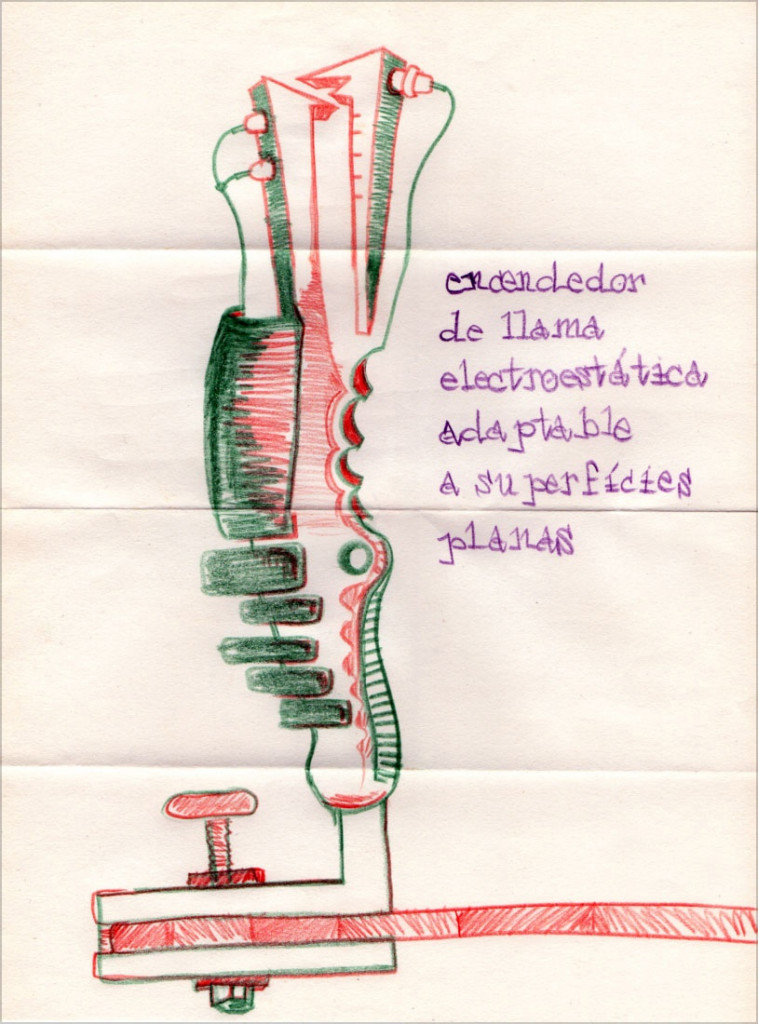 encendedor
de llama
electroestática
adaptable
a superfícies
planas